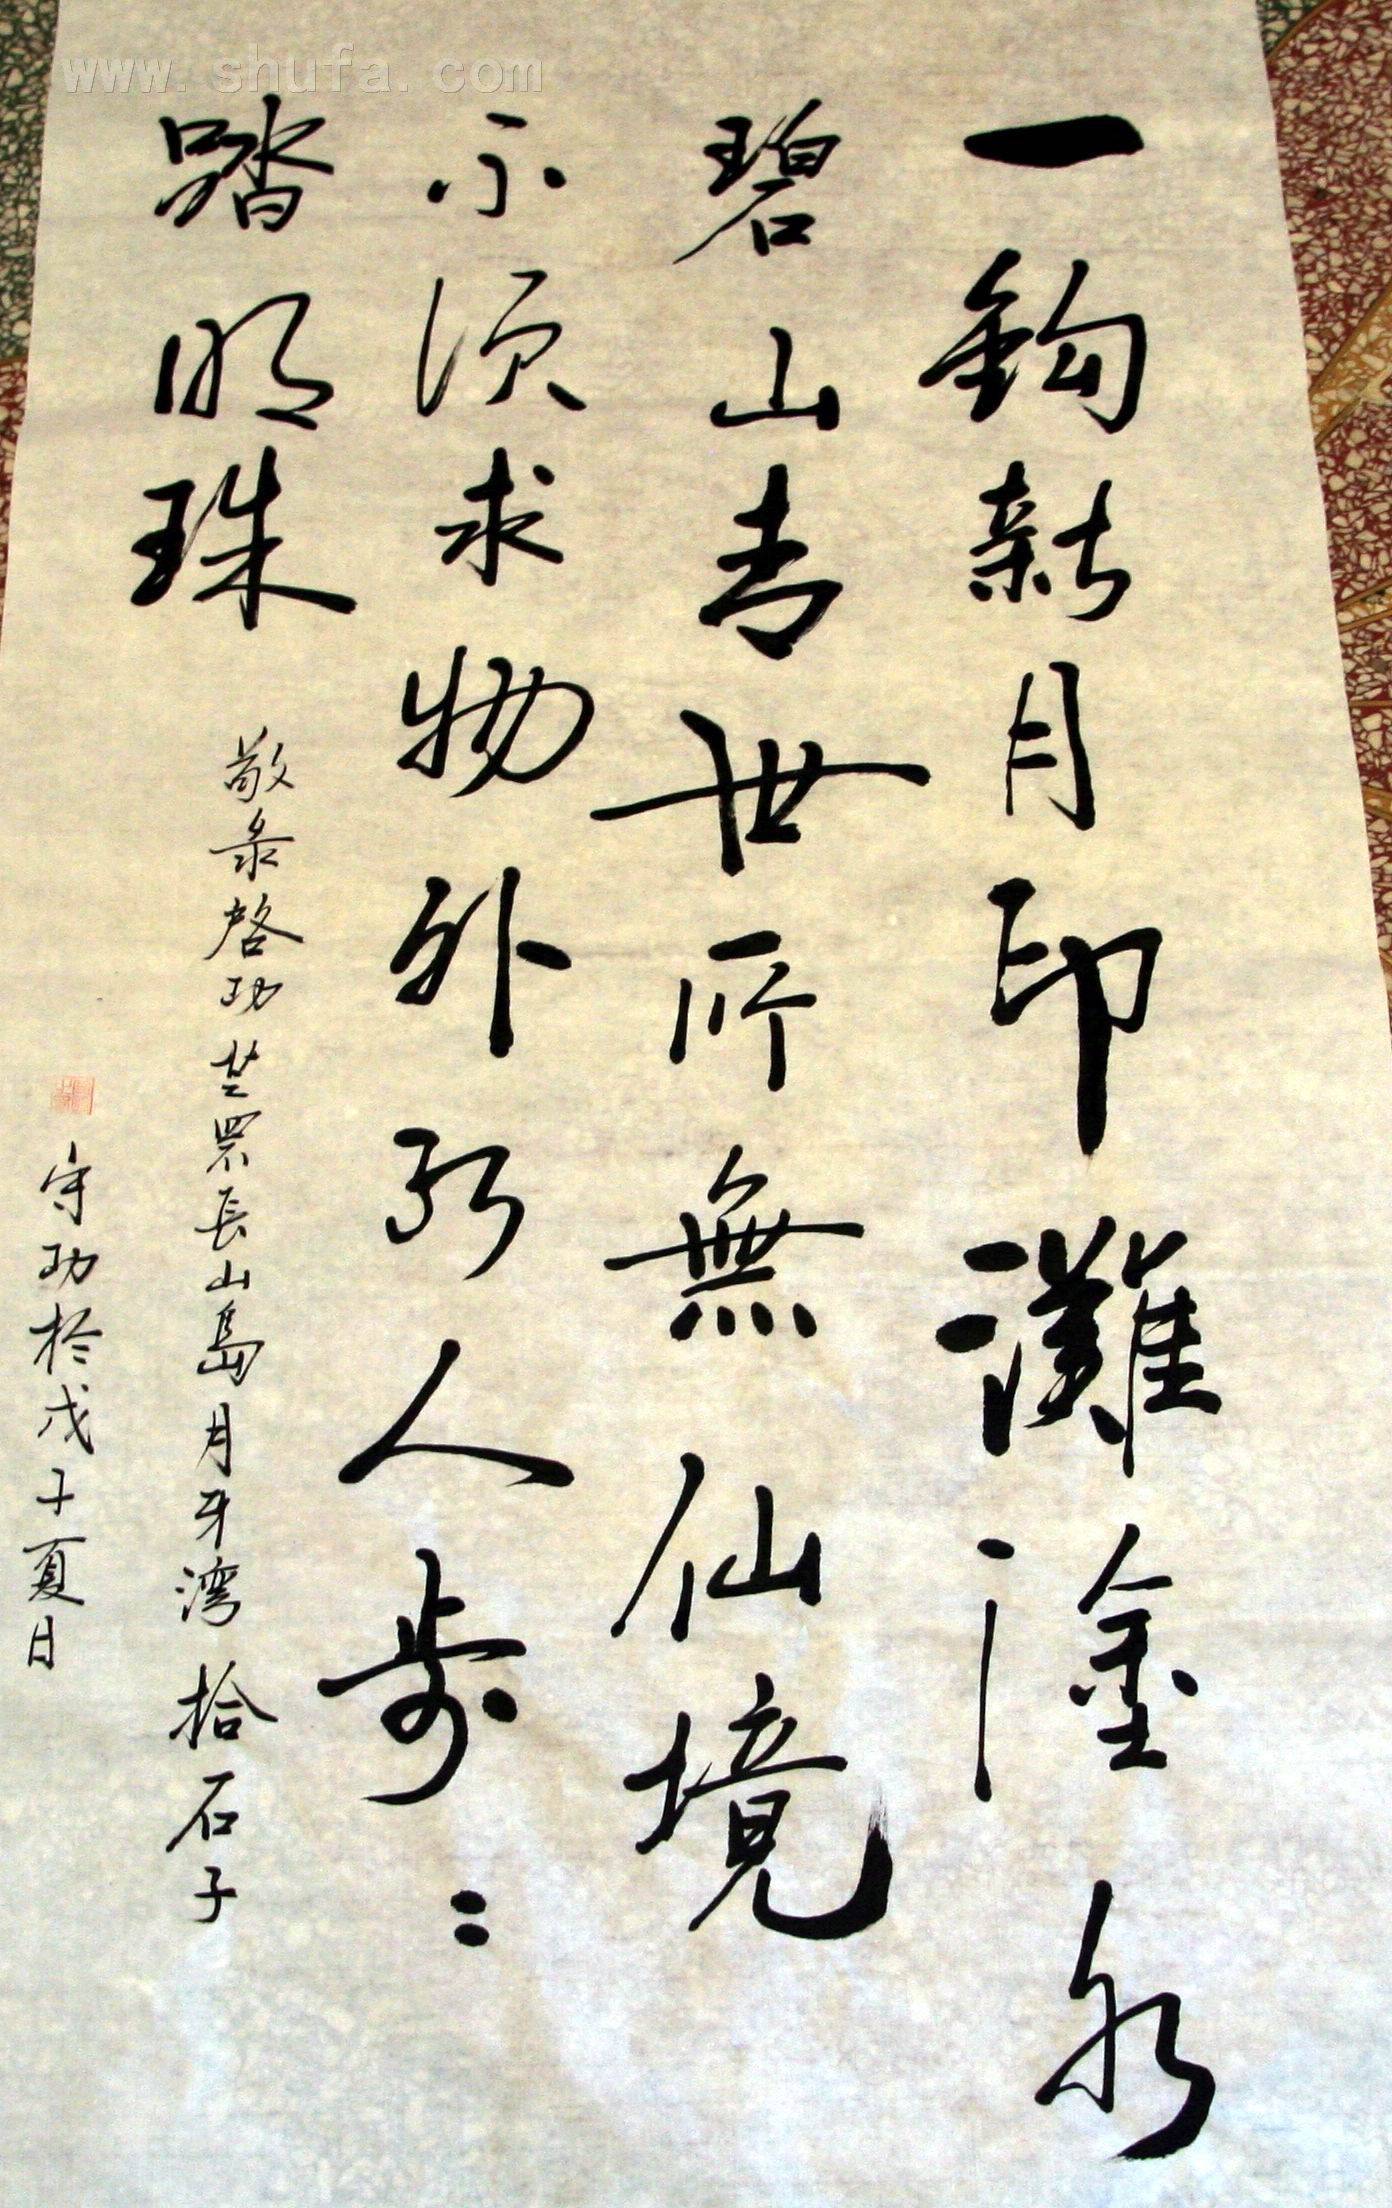 www.shufa.com
一鈎新月印灘塗水
碧山青世所無仙境
不須求物外人步〻
踏明珠
敬录啓功芝罘長山島月牙湾拾石子
守功於戊子夏日